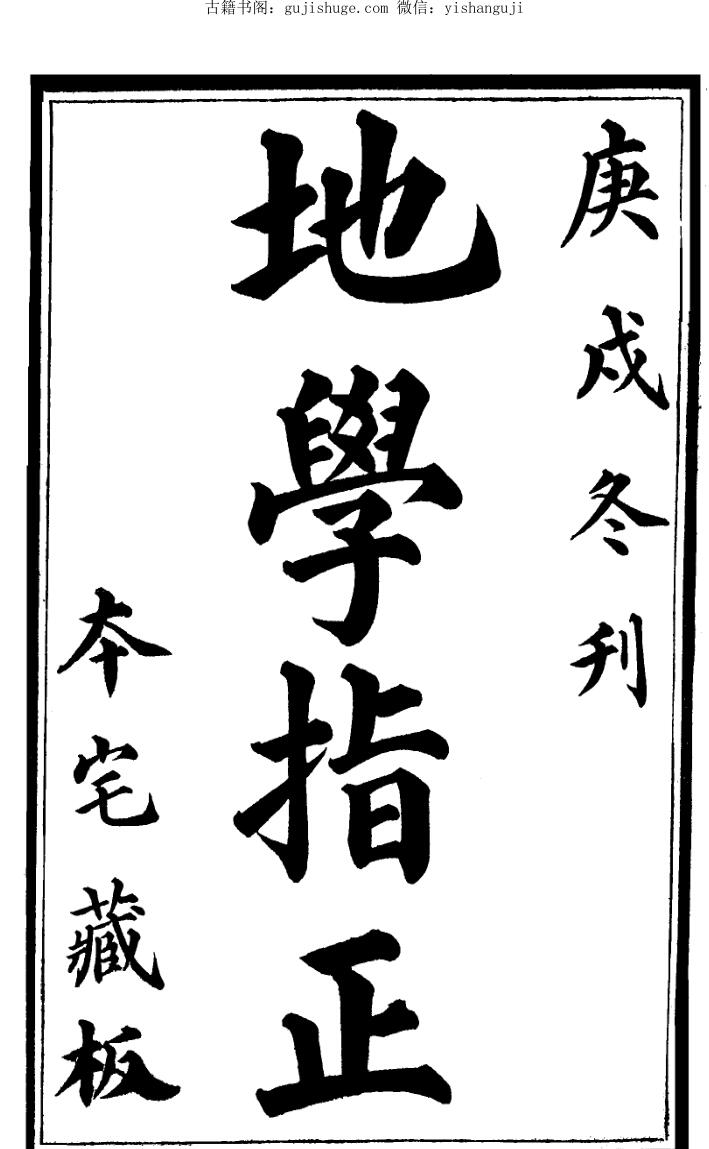 古籍书阁：gujishuge.com 微信：yishanguji
庚戌冬刋
地學指正
本宅藏板